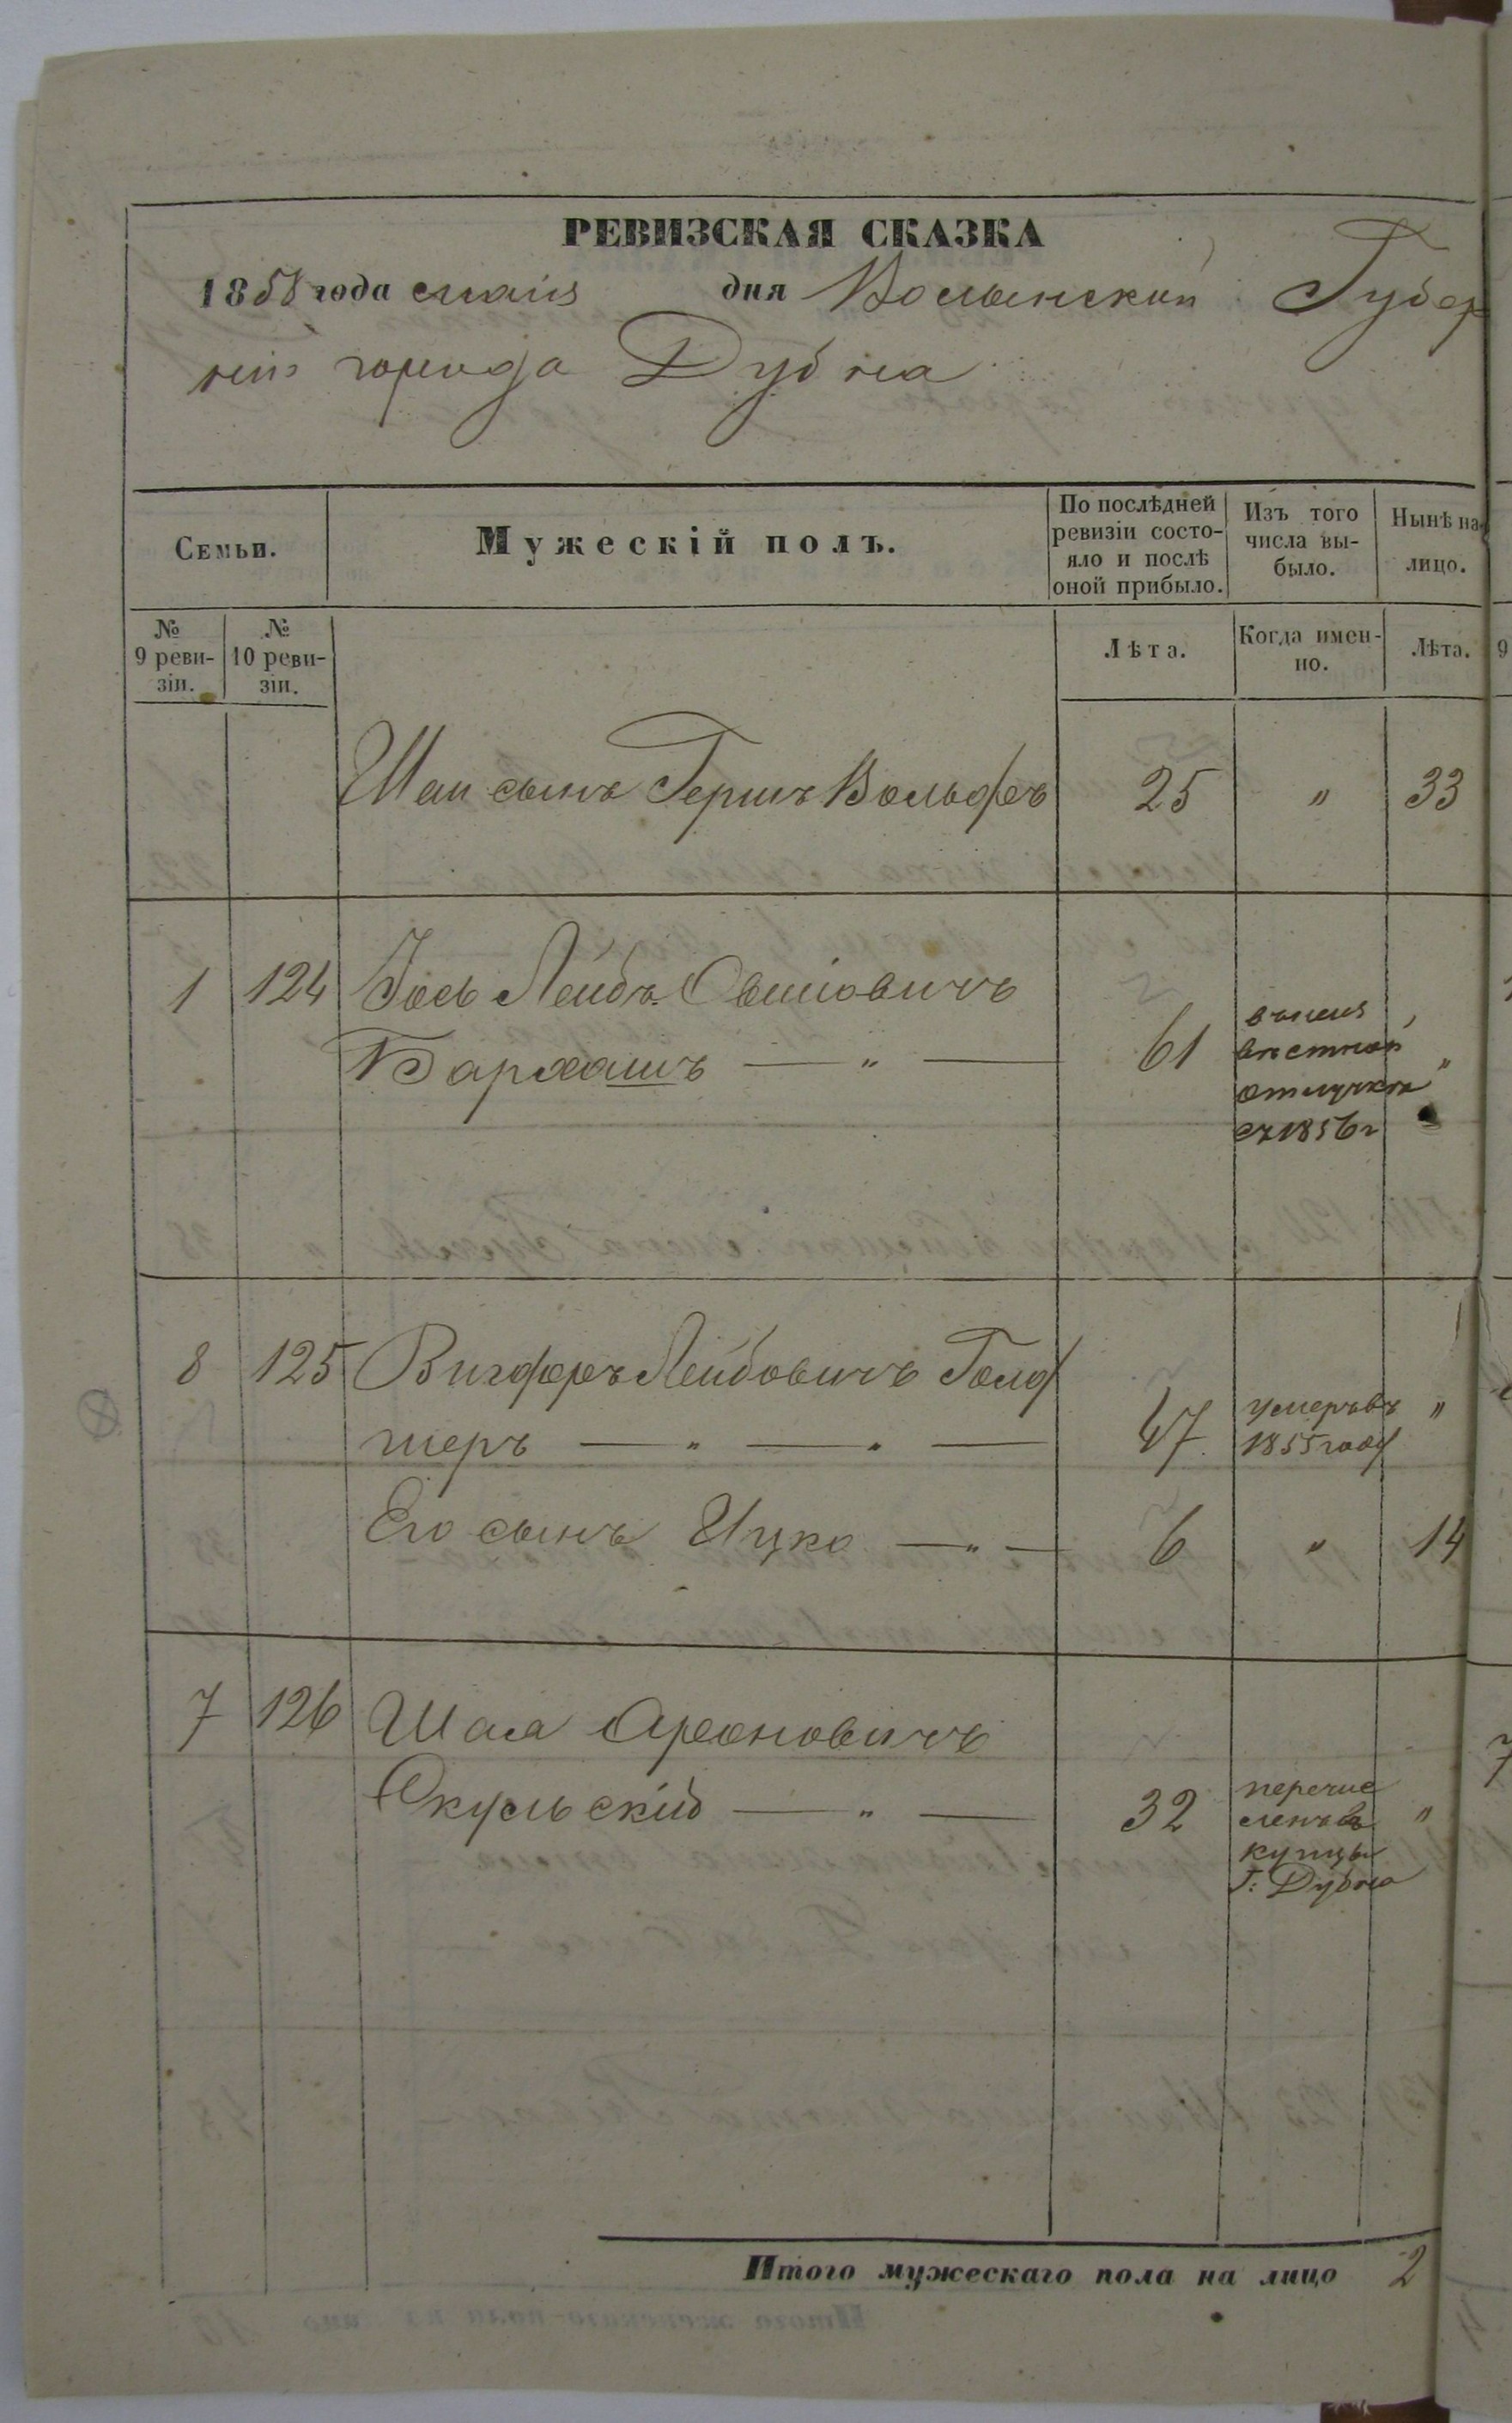 РЕВИЗСКАЯ СКАЗКА
1858 года маія дня Волынской Губер
ніи города Дубна
Семьи.
Мужескій полъ.
По послѣдней ревизіи состо-
яло и послѣ оной прибыло.
Изъ того числа вы-
было.
Нынѣ на лицо.
№ 9 реви-
зіи.
№ 10 реви-
зіи.
Лѣта.
Когда имен-
но.
Лѣта.
Шаи сынъ Гершъ Вольфъ 25 " 33
1 124 Іось Лейбъ Овшіовичъ
Бархашъ — " — 61
отлучкѣ "
съ 1856 г
8 125 Вигдоръ Лейбовичъ Голд
неръ — " — " — 47 умеръ въ "
1855 году
Его сынъ Ицко — " — 6 " 14
7 126 Шая Ароновичъ
Окульскій — " — 32 перечис
ленъ въ "
купцы
Г: Дубна
Итого мужескаго пола на лицо 2